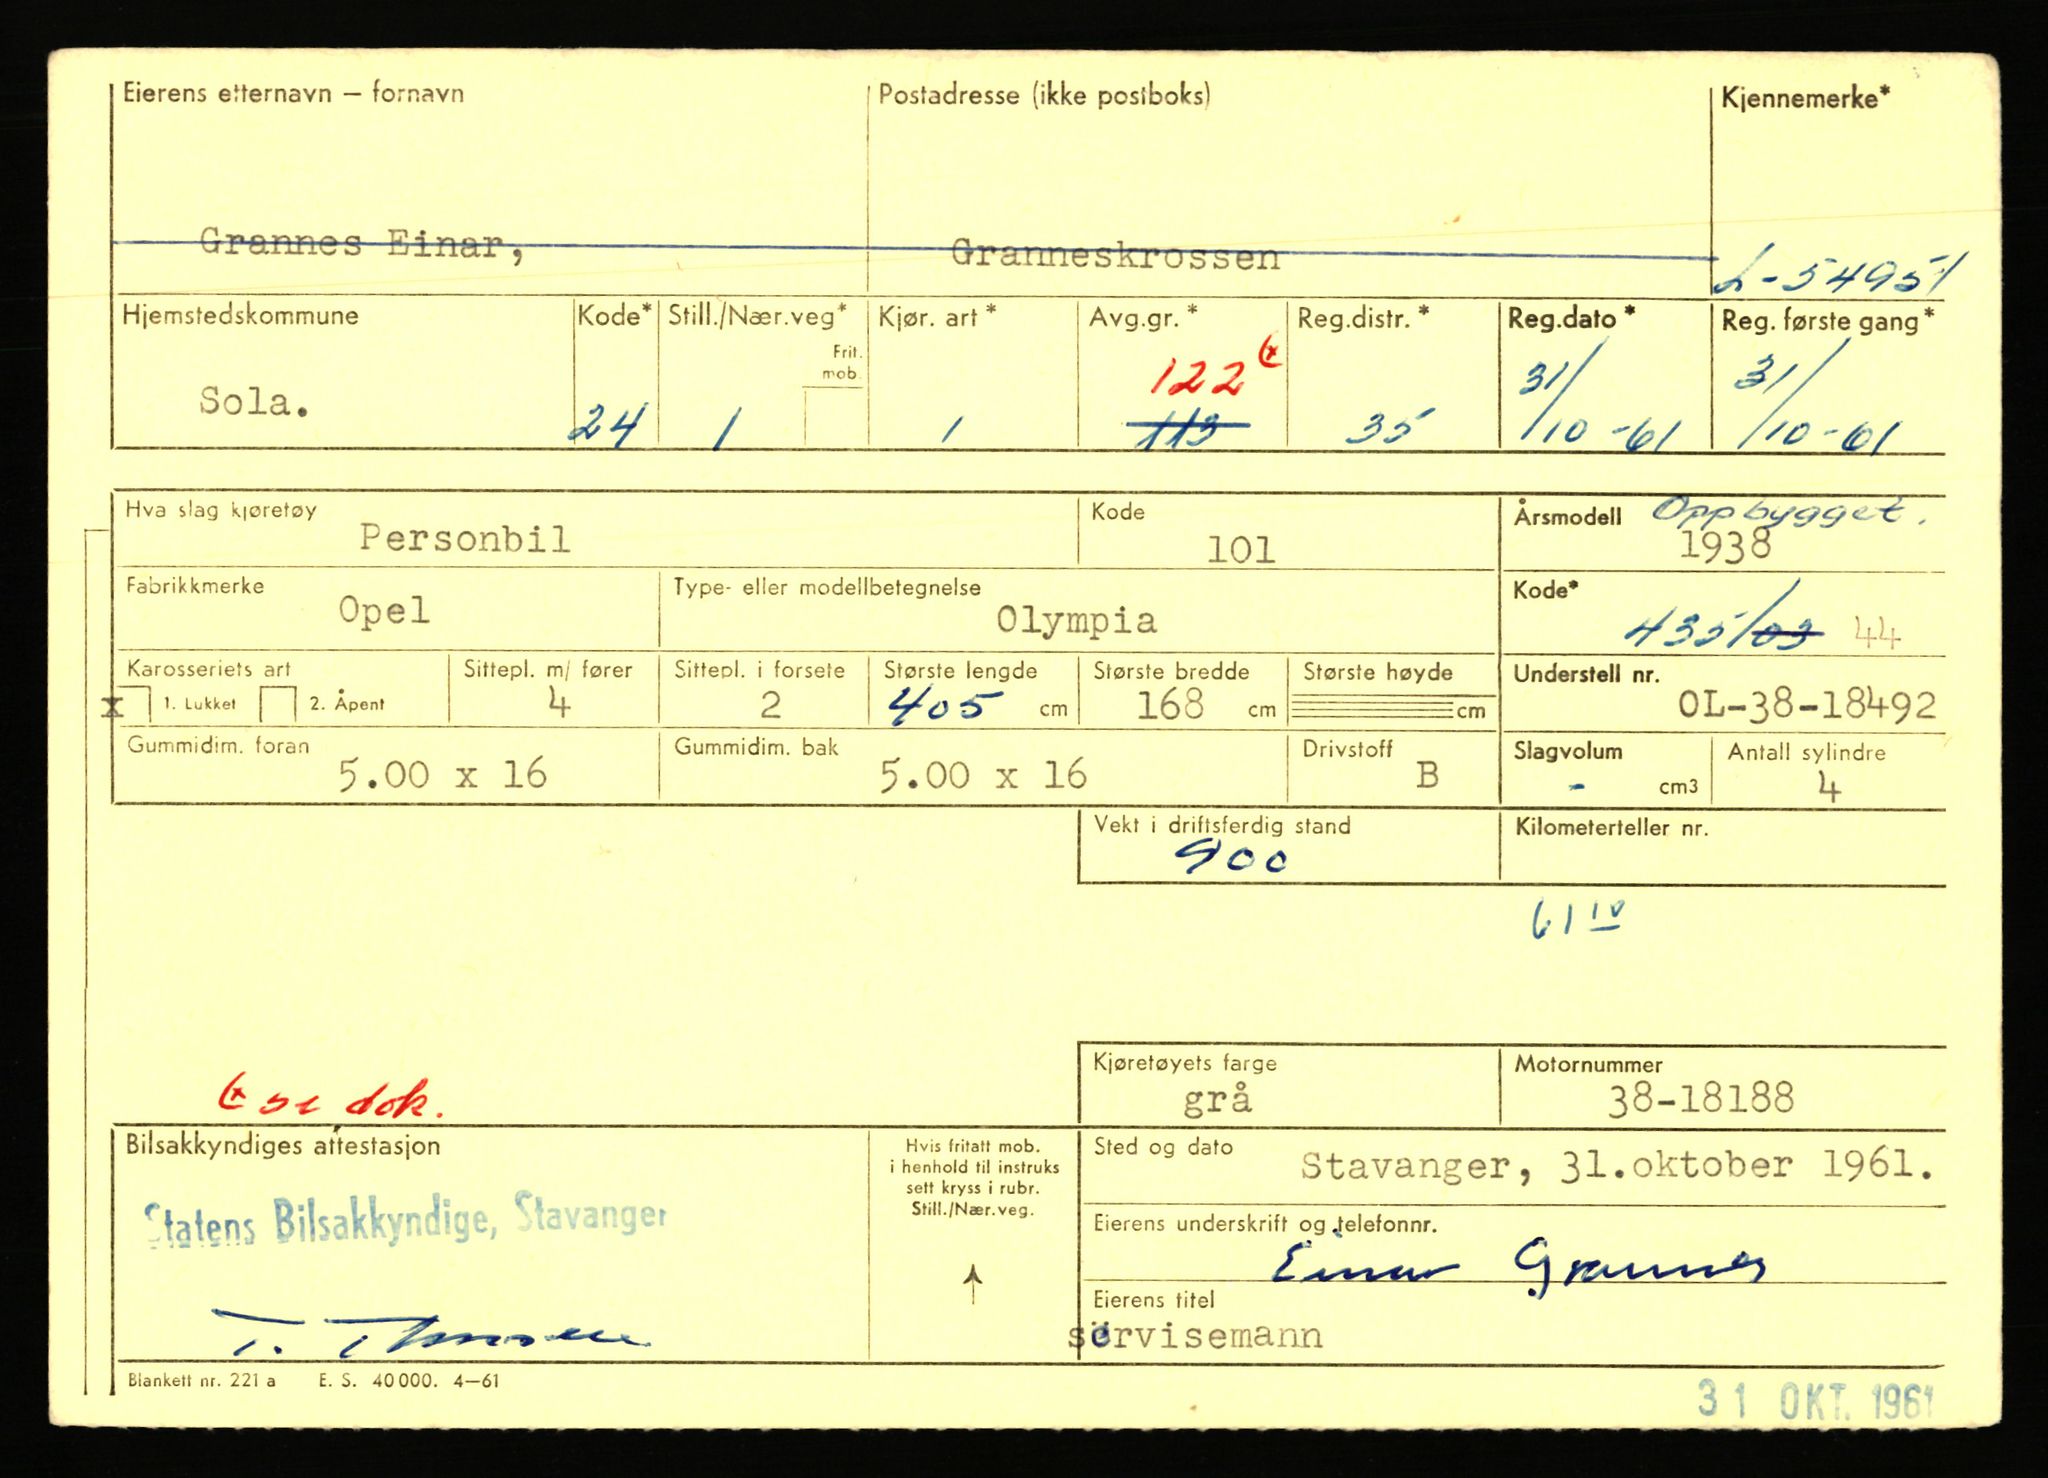 Eierens etternavn – fornavn Postadresse (ikke postboks) Kjennemerke*
Grannes Einar, Granneskrossen L-54951
Hjemstedskommune Kode* Still./Nær.veg* Kjør. art* Avg.gr.* Reg.distr.* Reg.dato* Reg. første gang*
Frit. mob.
122 (*
Sola. 24 1 1 113 35 31/10-61 31/10-61
Hva slag kjøretøy Personbil Kode 101 Årsmodell Oppbygget. 1938
Fabrikkmerke Opel Type- eller modellbetegnelse Olympia Kode* 435/03 44
Karosseriets art Sittepl. m/ fører Sittepl. i forsete Største lengde Største bredde Største høyde Understell nr.
x 1. Lukket 2. Åpent 4 2 405 cm 168 cm cm OL-38-18492
Gummidim. foran Gummidim. bak Drivstoff Slagvolum Antall sylindre
5.00 x 16 5.00 x 16 B - cm3 4
Vekt i driftsferdig stand Kilometerteller nr.
900
61 IV
Kjøretøyets farge Motornummer
(* se dok. grå 38-18188
Bilsakkyndiges attestasjon
Hvis fritatt mob.
i henhold til instruks
sett kryss i rubr.
Still./Nær.veg.
Sted og dato Stavanger, 31.oktober 1961.
Statens Bilsakkyndige, Stavanger
Eierens underskrift og telefonnr.
Einar Grannes
Eierens titel
servisemann
Blankett nr. 221 a E. S. 40 000. 4–61
31 OKT. 1961